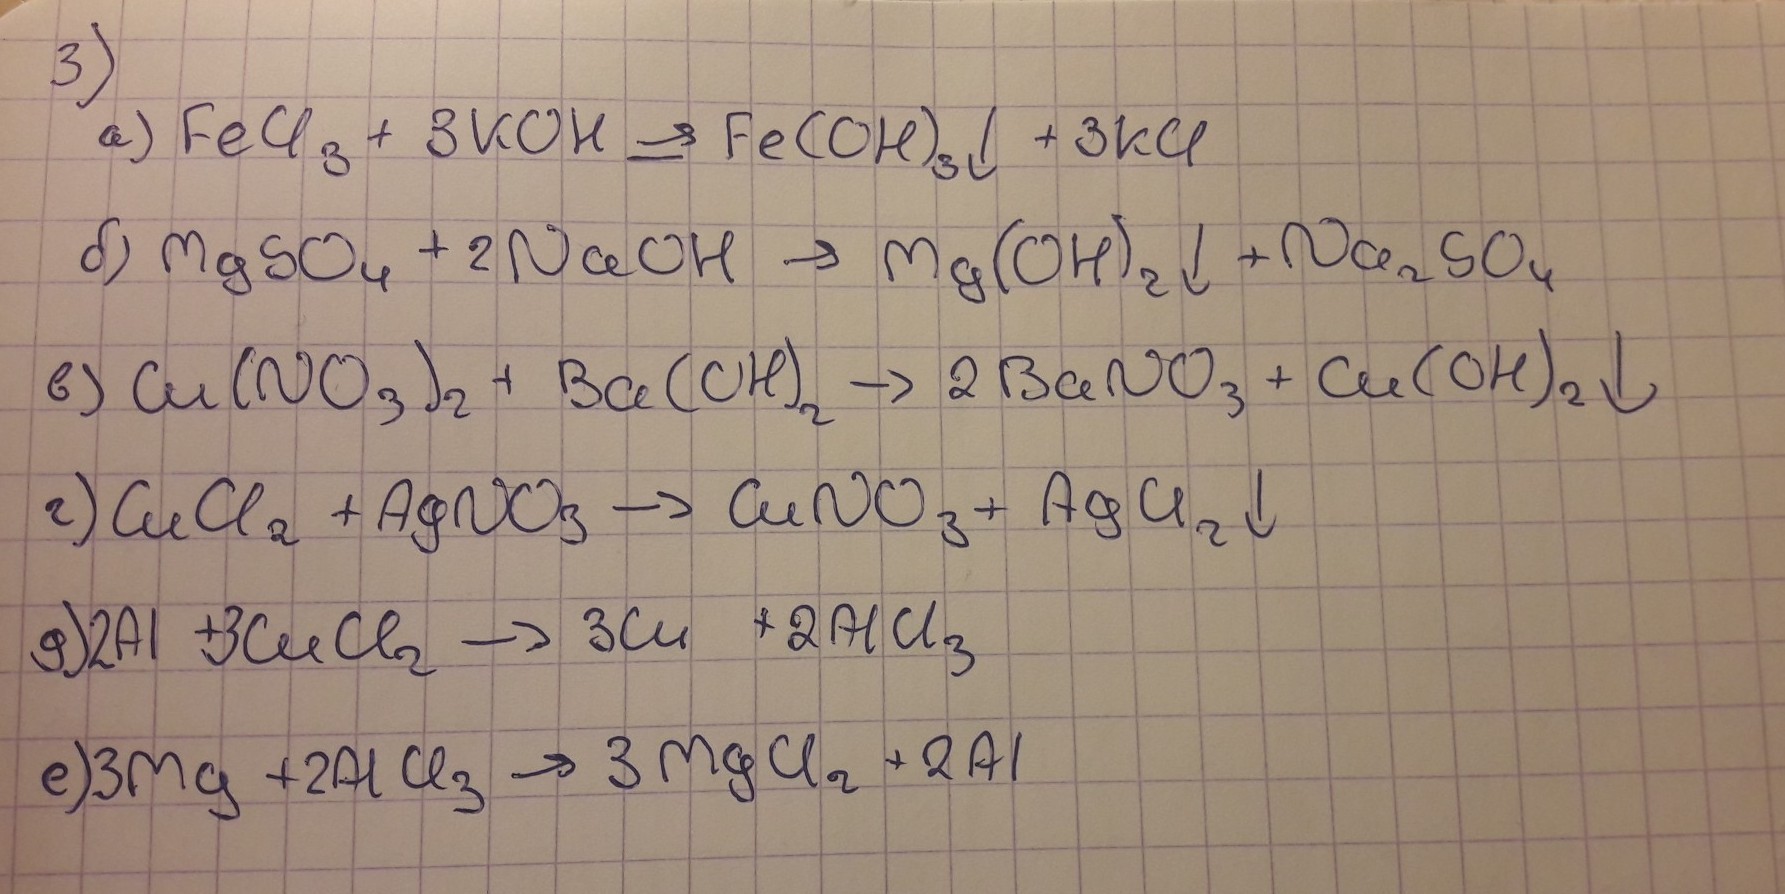 3)
а) FeCl₃ + 3KOH → Fe(OH)₃↓ + 3KCl
б) MgSO₄ + 2NaOH → Mg(OH)₂↓ + Na₂SO₄
в) Cu(NO₃)₂ + Ba(OH)₂ → 2BaNO₃ + Cu(OH)₂↓
г) CuCl₂ + AgNO₃ → CuNO₃ + AgCl₂↓
д) 2Al + 3CuCl₂ → 3Cu + 2AlCl₃
е) 3Mg + 2AlCl₃ → 3MgCl₂ + 2Al